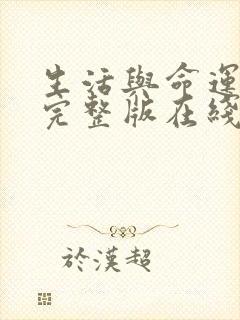 生活與命運
完整版在綫
於漢超